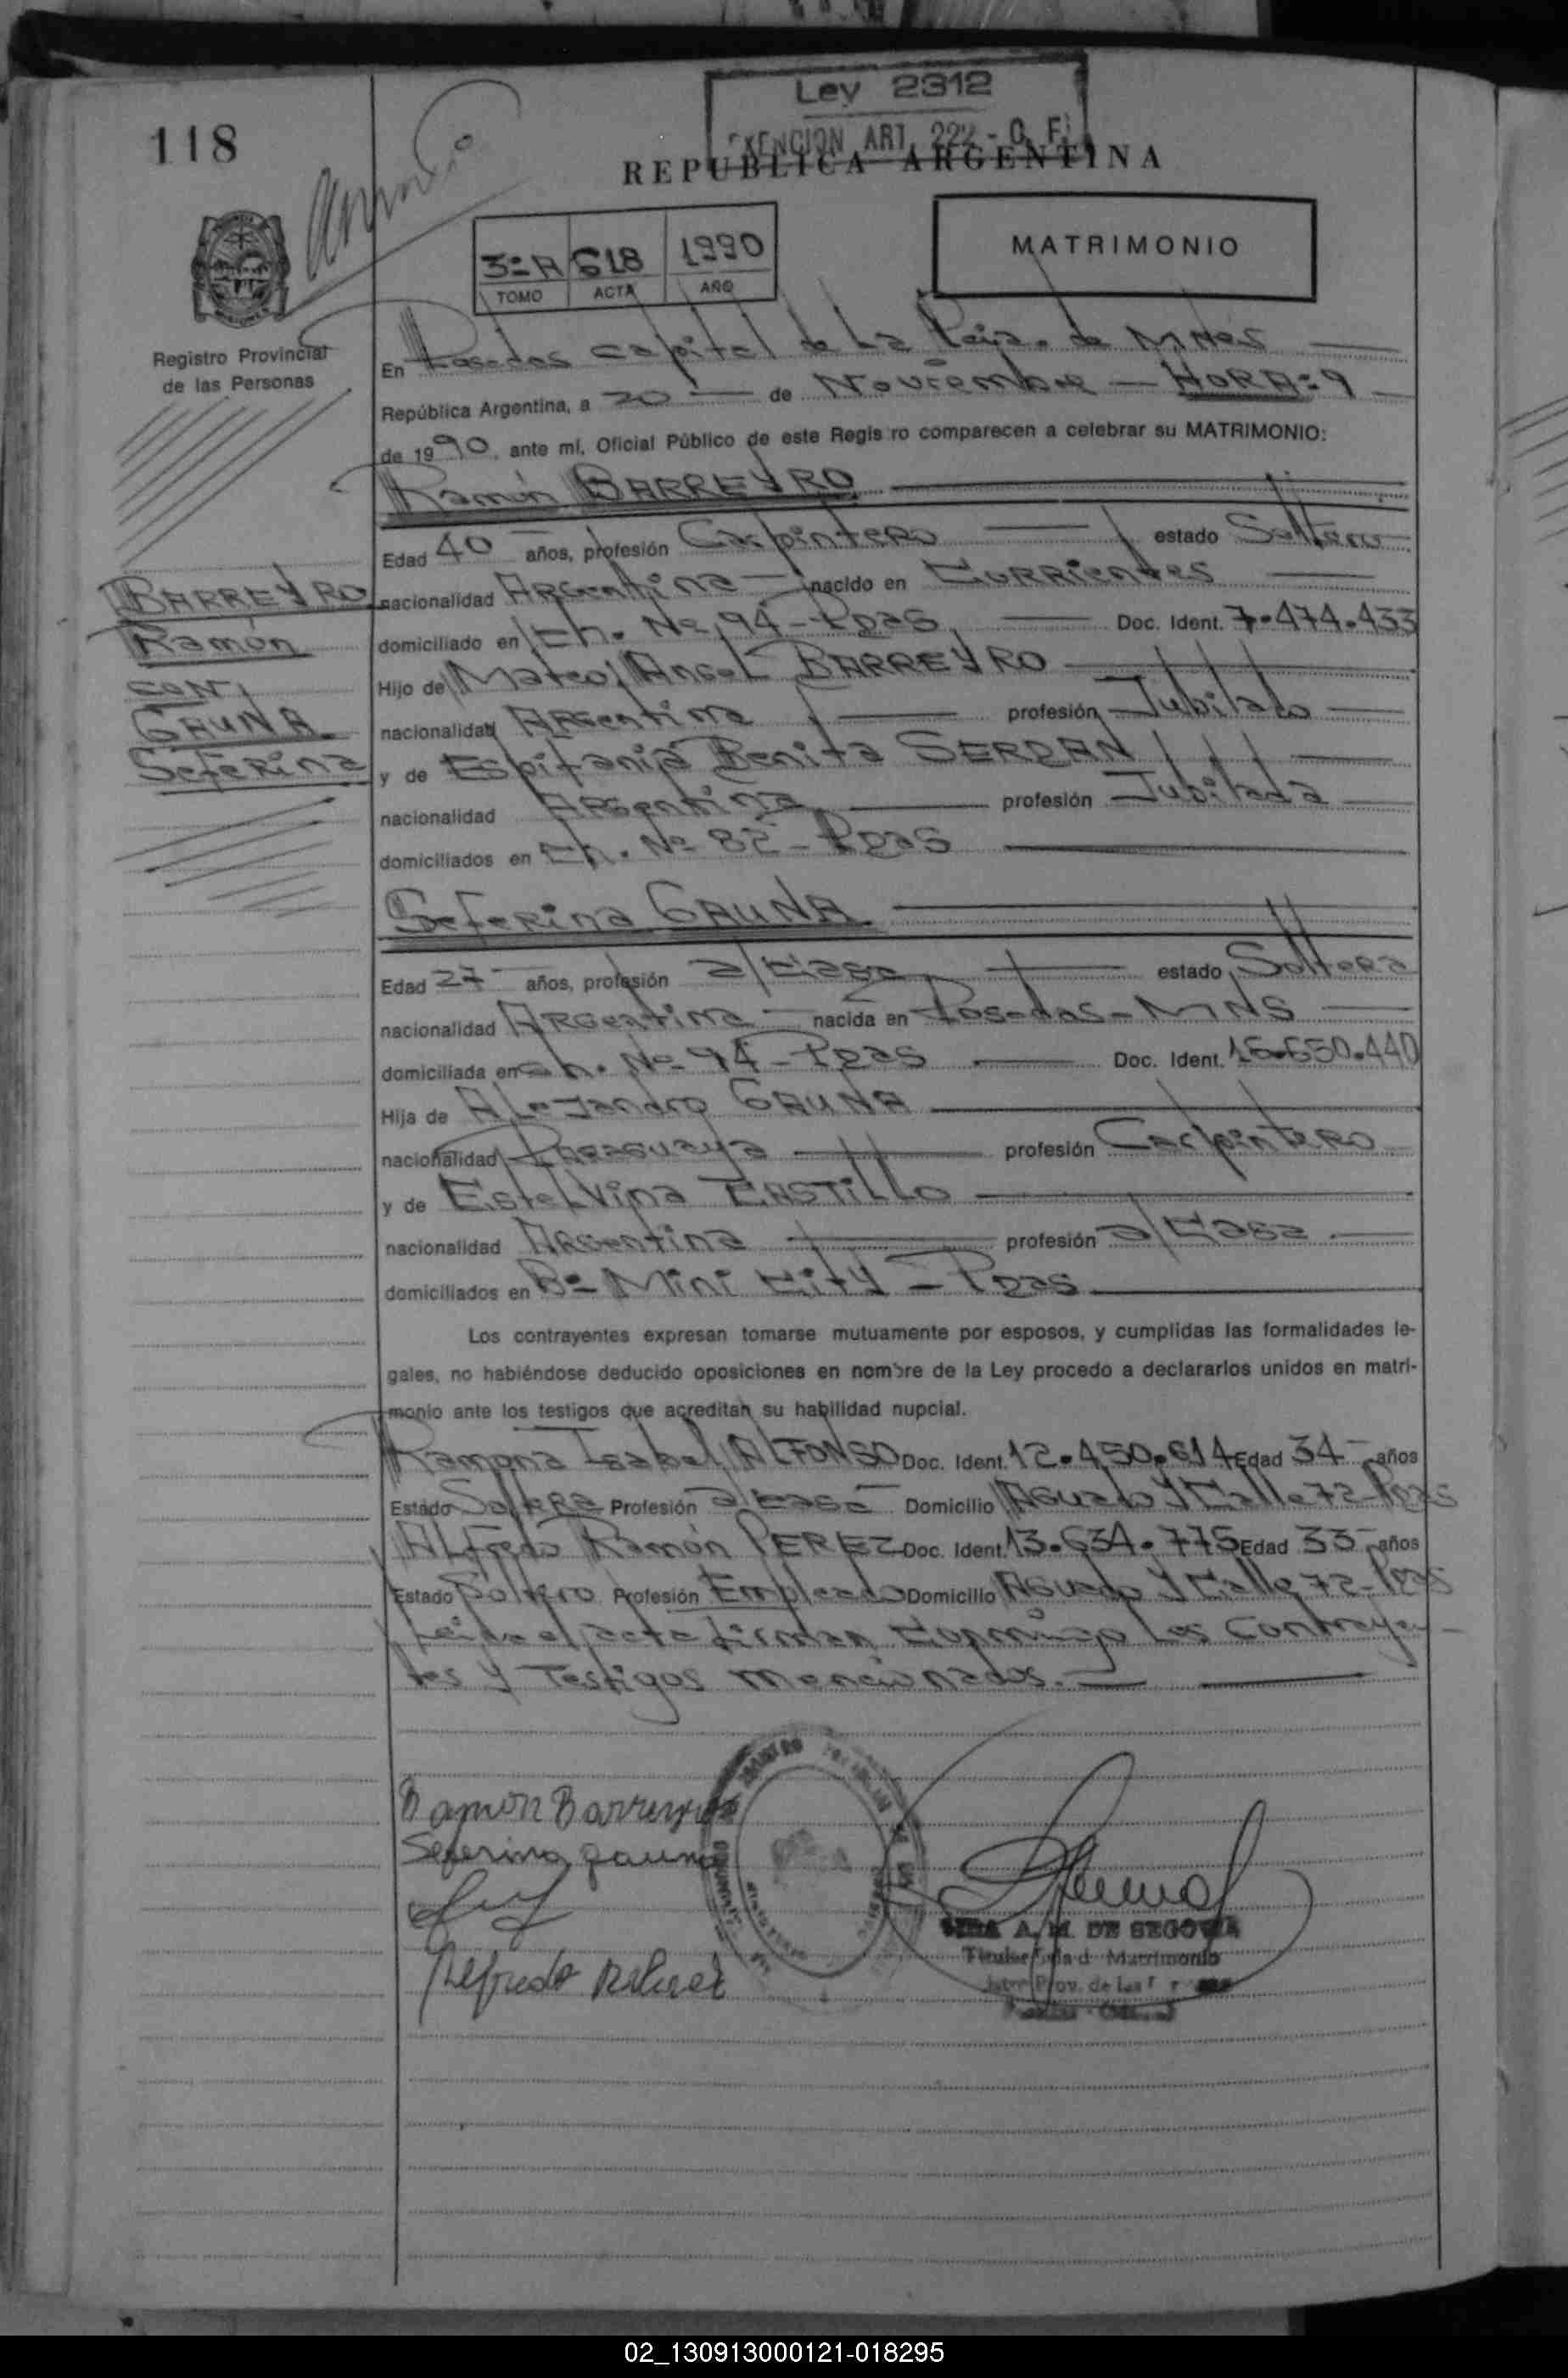 Ley 2312
EXENCION ART. 222 - C. F.
118
REPUBLICA ARGENTINA
3º A 618 1990
TOMO ACTA AÑO
MATRIMONIO
Registro Provincial
de las Personas
En Posadas capital de La Pcia. de MNes
República Argentina, a 20 de Noviembre - HORA: 9
de 1990, ante mí, Oficial Público de este Registro comparecen a celebrar su MATRIMONIO:
Ramón BARREYRO
Edad 40 años, profesión Carpintero estado Soltero
nacionalidad Argentina nacido en Corrientes
domiciliado en Ch. Nº 94 - Pdas Doc. Ident. 7.474.433
Hijo de Mateo Angel BARREYRO
nacionalidad Argentina profesión Jubilado
y de Espifania Benita SERDAN
nacionalidad Argentina profesión Jubilada
domiciliados en Ch. Nº 82 - Pdas
BARREYRO
Ramón
CON
GAUNA
Seferina
Seferina GAUNA
Edad 27 años, profesión a/casa estado Soltera
nacionalidad Argentina nacida en Posadas - MNS
domiciliada en Ch. Nº 94 - Pdas Doc. Ident. 16.650.440
Hija de Alejandro GAUNA
nacionalidad Paraguaya profesión Carpintero
y de Estelvina CASTILLO
nacionalidad Argentina profesión a/casa
domiciliados en Bº Mini City - Pdas
Los contrayentes expresan tomarse mutuamente por esposos, y cumplidas las formalidades le-
gales, no habiéndose deducido oposiciones en nombre de la Ley procedo a declararlos unidos en matri-
monio ante los testigos que acreditan su habilidad nupcial.
Ramona Isabel ALFONSO Doc. Ident. 12.450.614 Edad 34 años
Estado Soltera Profesión a/casa Domicilio Aguado y Calle 72 - Pdas
Alfredo Ramón PEREZ Doc. Ident. 13.634.775 Edad 33 años
Estado Soltero Profesión Empleado Domicilio Aguado y Calle 72 - Pdas
Leida el acta firman conmigo los Contrayen-
tes y Testigos mencionados.
Ramón Barreyro
Seferina gauna
Alfredo
A. M. DE SEGOVIA
Matrimonio
Prov. de las
02_130913000121-018295